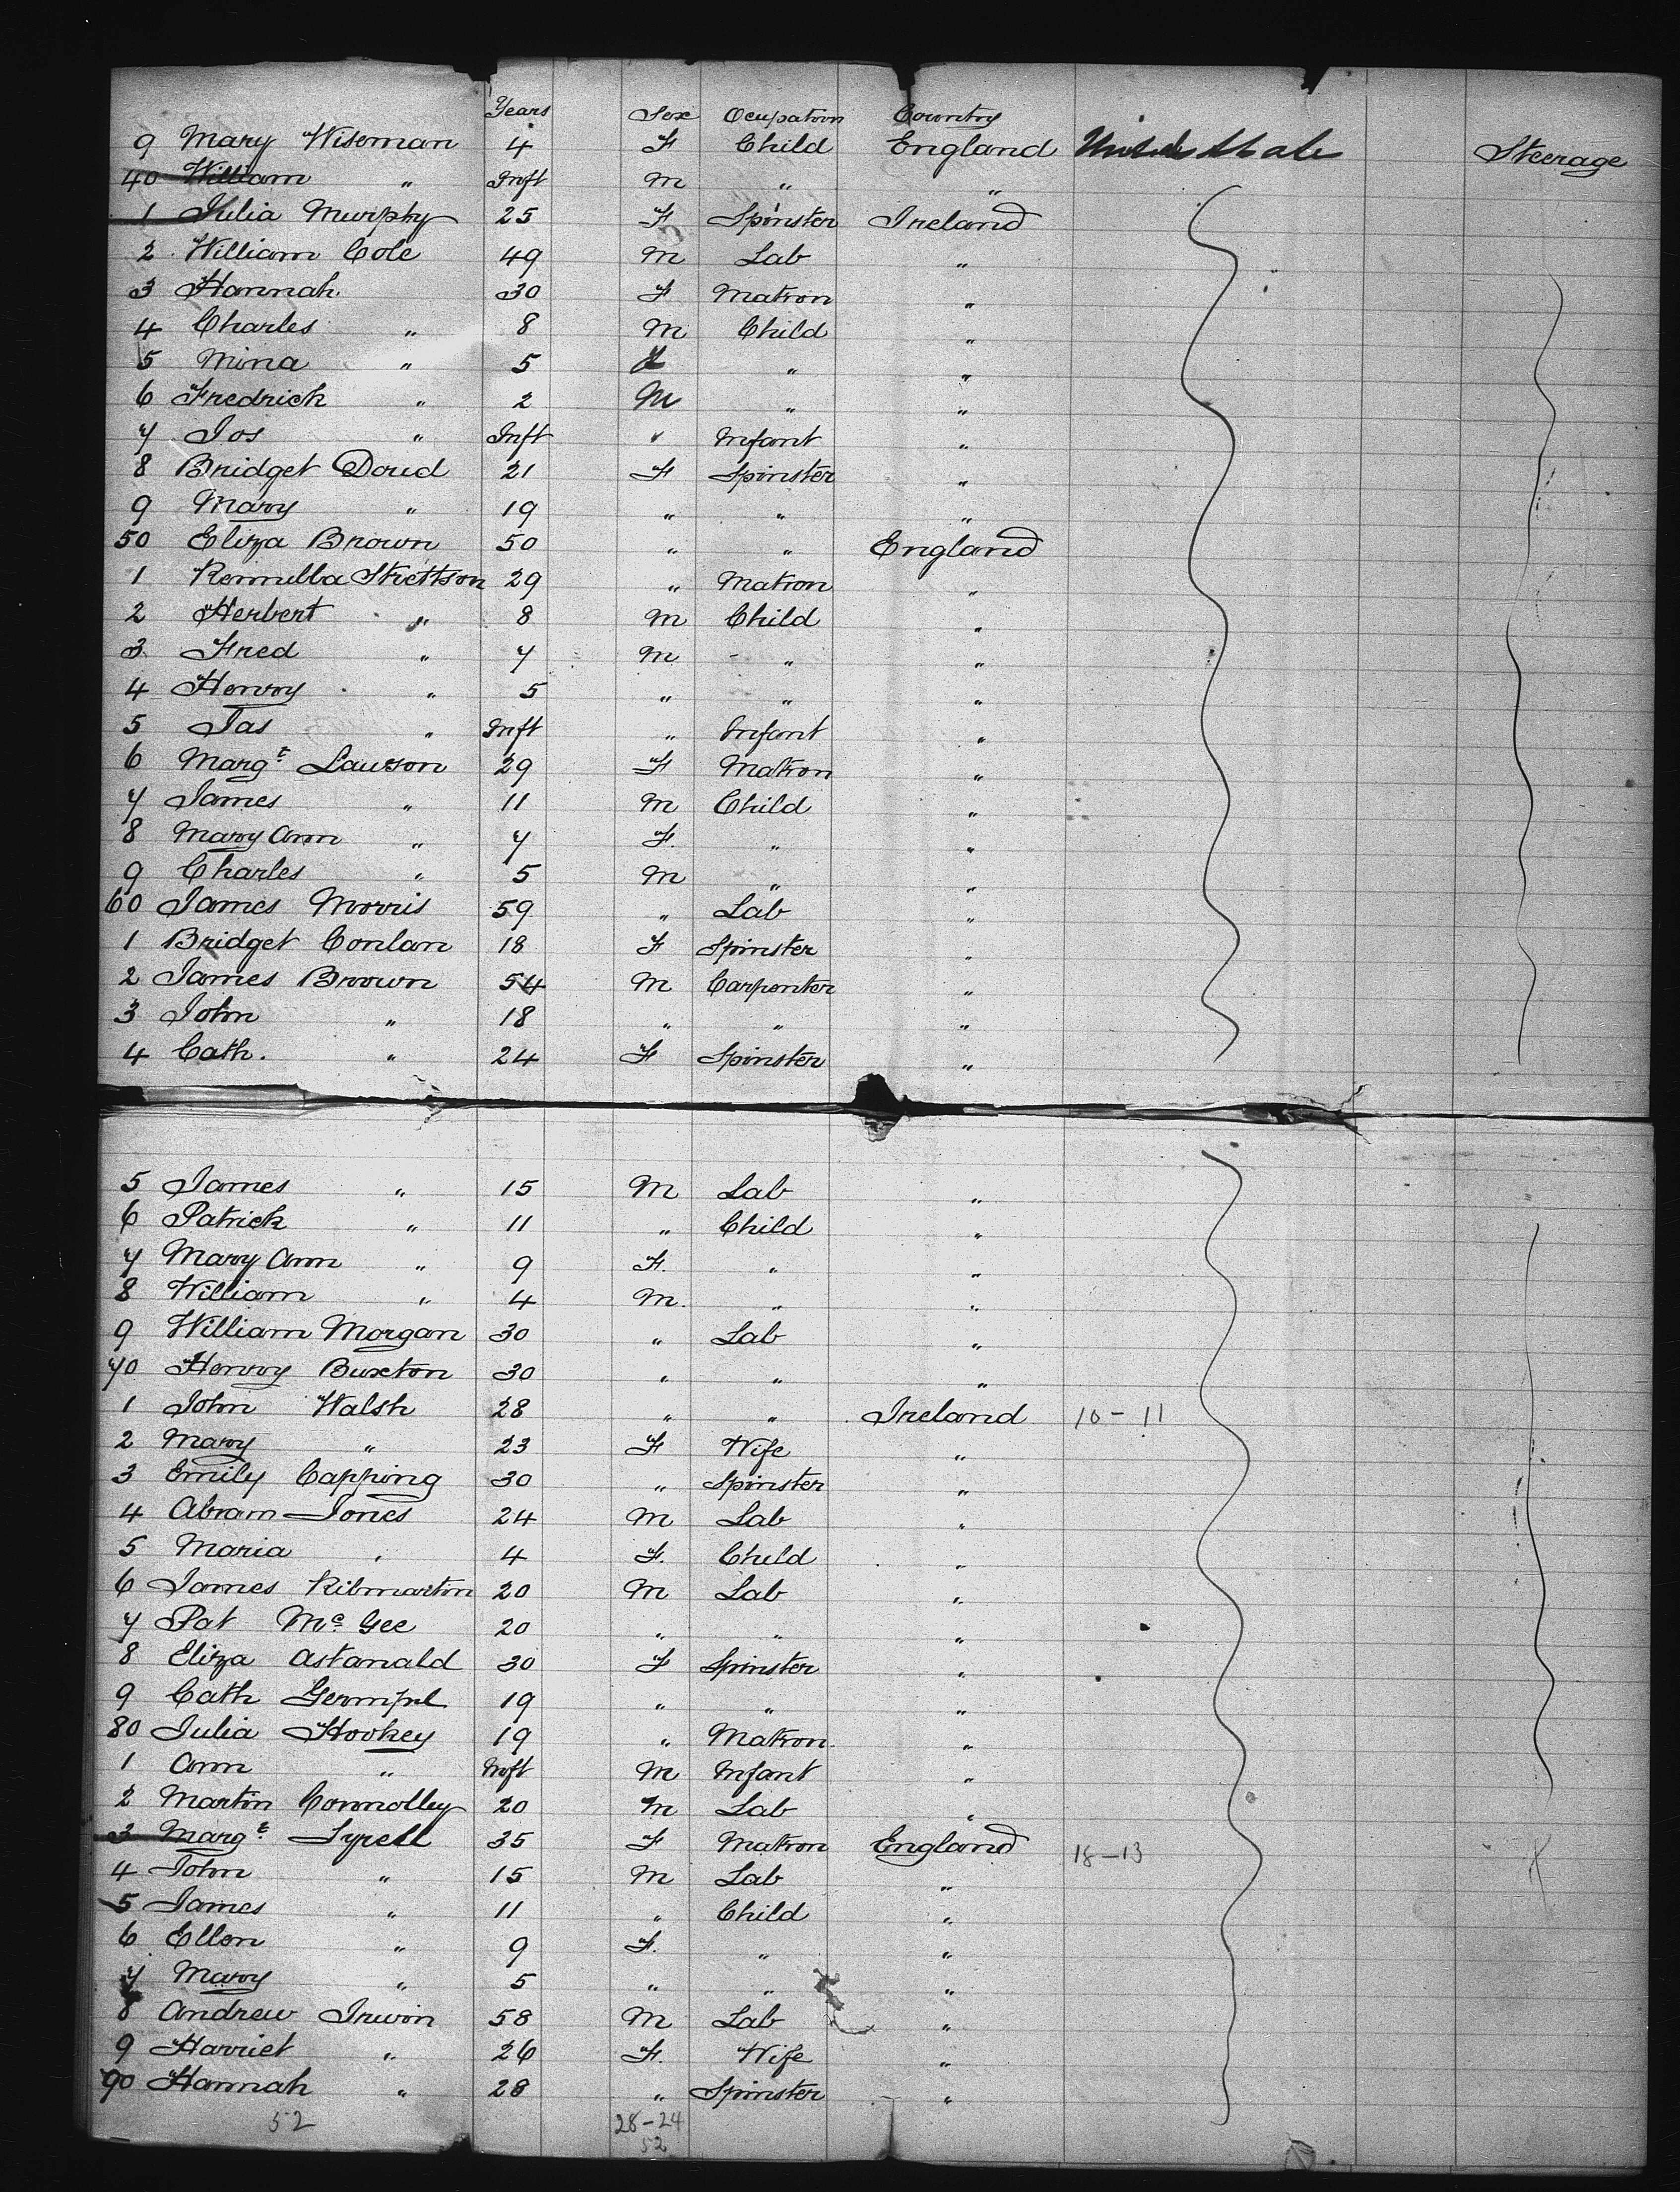 Years Sex Ocupation Country
9 Mary Wiseman 4 F Child England United State Steerage
40 William " Inft M " "
1 Julia Murphy 25 F Spinster Ireland
2 William Cole 49 M Lab "
3 Hannah 30 F Matron "
4 Charles " 8 M Child "
5 Mina " 5 F " "
6 Fredrick " 2 M " "
7 Jos " Inft " Infant "
8 Bridget Doud 21 F Spinster "
9 Mary " 19 " " "
50 Eliza Brown 50 " " England
1 Strettson 29 " Matron "
2 Herbert " 8 M Child "
3 Fred " 7 M " "
4 Henry " 5 " " "
5 Jas " Inft " Infant "
6 Margt Lawson 29 F Matron "
7 James " 11 M Child "
8 Mary Ann " 7 F. " "
9 Charles " 5 M " "
60 James Morris 59 " Lab "
1 Bridget Conlan 18 F Spinster "
2 James Brown 54 M Carpenter "
3 John " 18 " " "
4 Cath. " 24 F Spinster "
5 James " 15 M Lab "
6 Patrick " 11 " Child "
7 Mary Ann " 9 F. " "
8 William " 4 M. " "
9 William Morgan 30 " Lab "
70 Henry Buxton 30 " " "
1 John Walsh 28 " " Ireland 10-11
2 Mary " 23 F Wife "
3 Emily Capping 30 " Spinster "
4 Abram Jones 24 M Lab "
5 Maria " 4 F. Child "
6 James Kilmartin 20 M Lab "
7 Pat Mc Gee 20 " " "
8 Eliza Astanald 30 F Spinster "
9 Cath 19 " " "
80 Julia Hookey 19 " Matron "
1 Ann " Inft M Infant "
2 Martin Connolley 20 M Lab "
3 Margt Tyrell 35 F Matron England 18-13
4 John " 15 M Lab "
5 James " 11 " Child "
6 Ellen " 9 F. " "
7 Mary " 5 " " "
8 Andrew Irwin 58 M Lab "
9 Harriet " 26 F. Wife "
90 Hannah " 28 " Spinster "
52 28-24
52